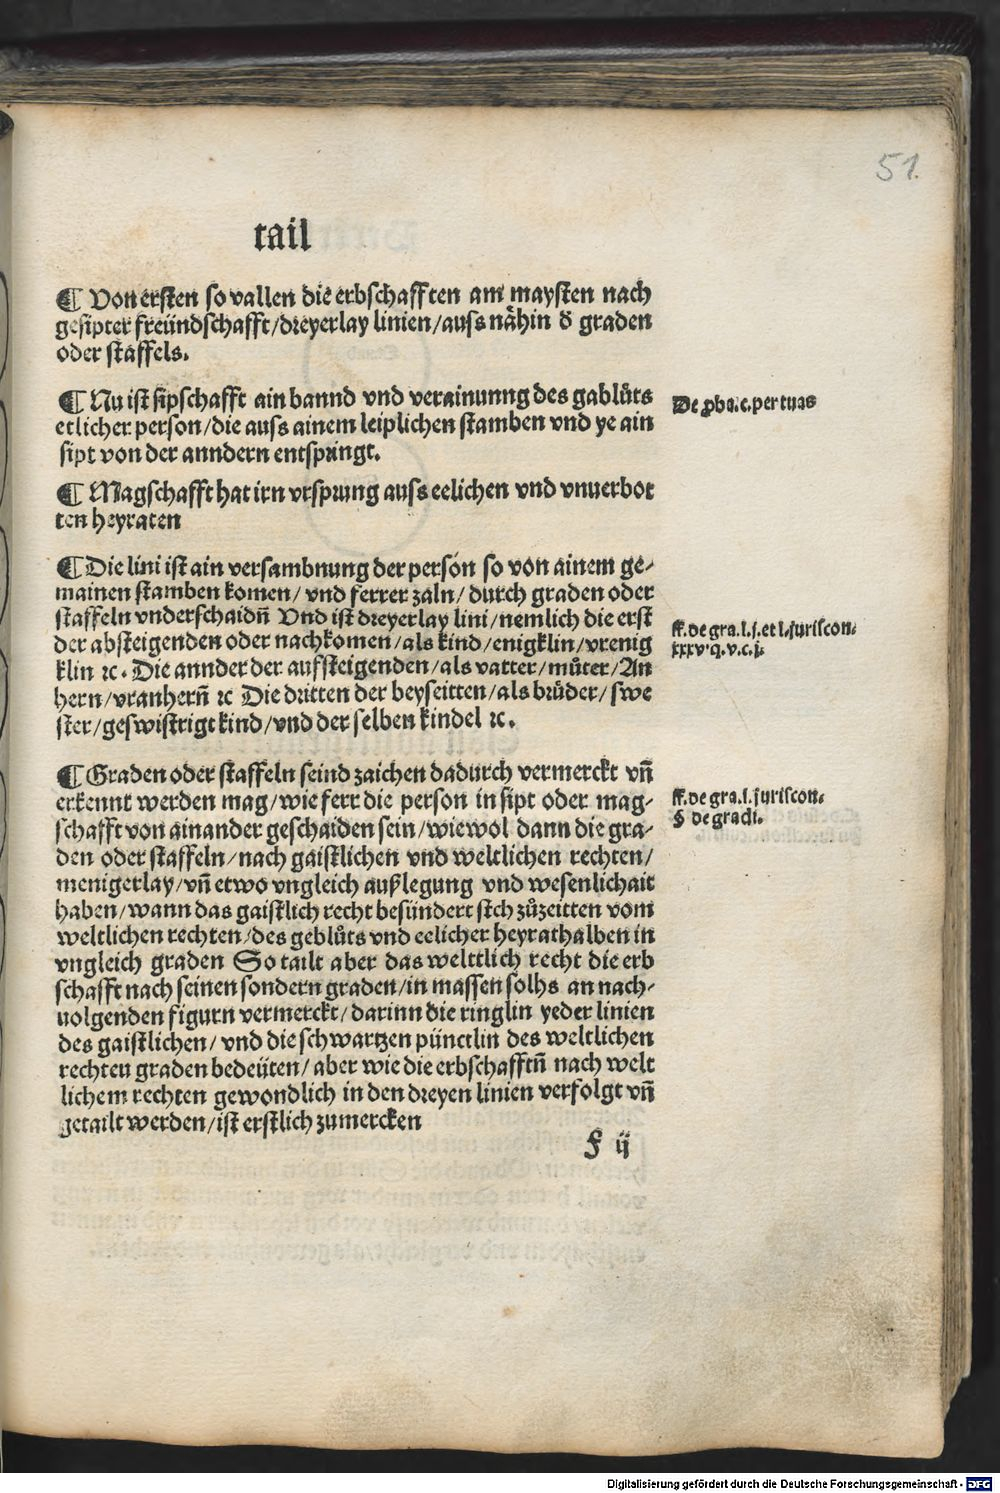 51
tail
¶ Von ersten so vallen die erbschafften am maysten nach
gesipter freündschafft/dreyerlay linien/auss nähin d᷑ graden
oder staffels.
¶ Nu ist sipschafft ain bannd vnd verainunng des gablůts
etlicher person/die auss ainem leiplichen stamben vnd ye ain
sipt von der anndern entspringt.
De ꝓba.c.per tuas
¶ Magschafft hat irn vrsprung auss eelichen vnd vnuerbot
ten heyraten
¶ Die lini ist ain versambnung der person so von ainem ge⸗
mainen stamben komen/ vnd ferrer zaln/ durch graden oder
staffeln vnderschaidn̄ Vnd ist dreyerlay lini/nemlich die erst
der absteigenden oder nachkomen/als kind/enigklin/vrenig
klin ⁊c. Die annder der aufsteigenden/als vatter/můter/An
hern/vranhern̄ ⁊c Die dritten der beyseitten/als brůder/swe
ster/geswistrigt kind/vnd der selben kindel ⁊c.
ff.de gra.l.j.et l.juriscon.
xxxv.q.v.c.j.
¶ Graden oder staffeln seind zaichen dadurch vermerckt vn̄
erkennt werden mag/wie ferr die person in sipt oder mag⸗
schafft von ainander geschaiden sein/wiewol dann die gra⸗
den oder staffeln/nach gaistlichen vnd weltlichen rechten/
menigerlay/vn̄ etwo vngleich außlegung vnd wesenlichait
haben/wann das gaistlich recht besündert sich zůzeitten vom
weltlichen rechten/des geblůts vnd eelicher heyrathalben in
vngleich graden So tailt aber das welttlich recht die erb
schafft nach seinen sondern graden/in massen solhs an nach⸗
uolgenden figurn vermerckt/darinn die ringlin yeder linien
des gaistlichen/ vnd die schwartzen pünctlin des weltlichen
rechten graden bedeüten/aber wie die erbschafftn̄ nach welt
lichem rechten gewondlich in den dreyen linien verfolgt vn̄
getailt werden/ist erstlich zumercken
ff.de gra.l.juriscon.
§ de gradi.
f ij
Digitalisierung gefördert durch die Deutsche Forschungsgemeinschaft - DFG